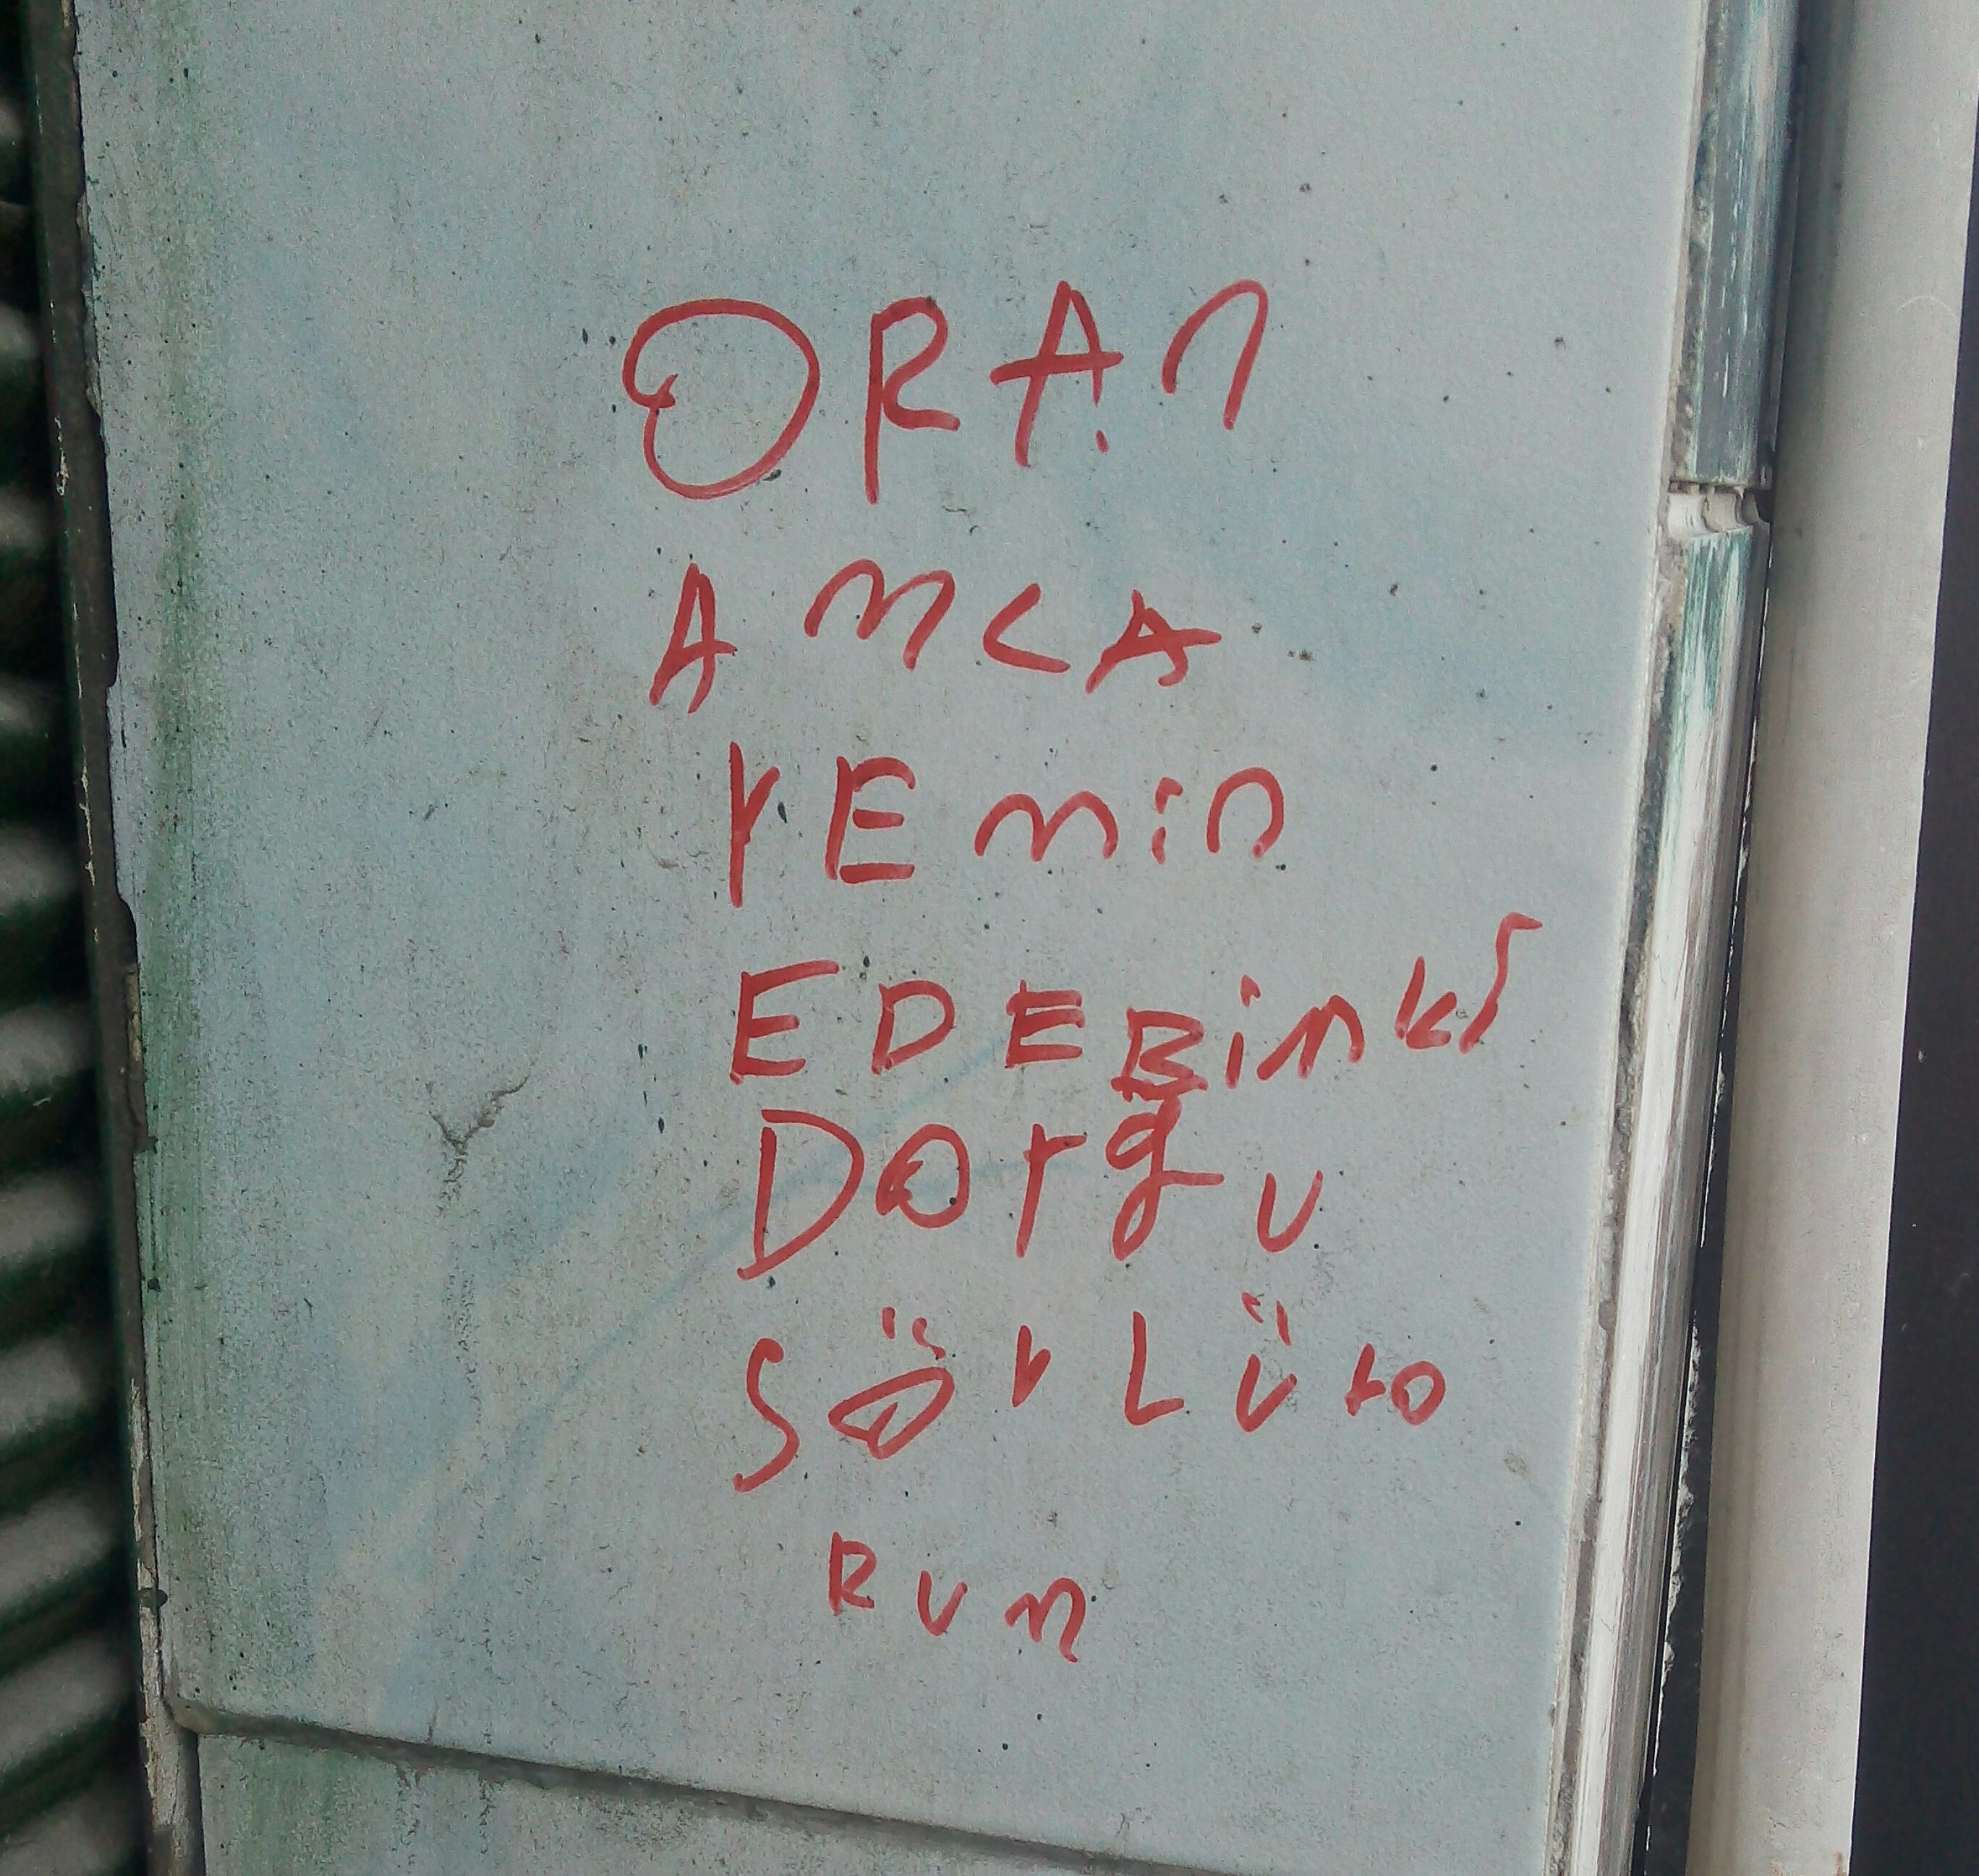 ORAN
AMCA
YEMİN
EDERİMKİ
DOYGU
SÖYLÜYO
RUM